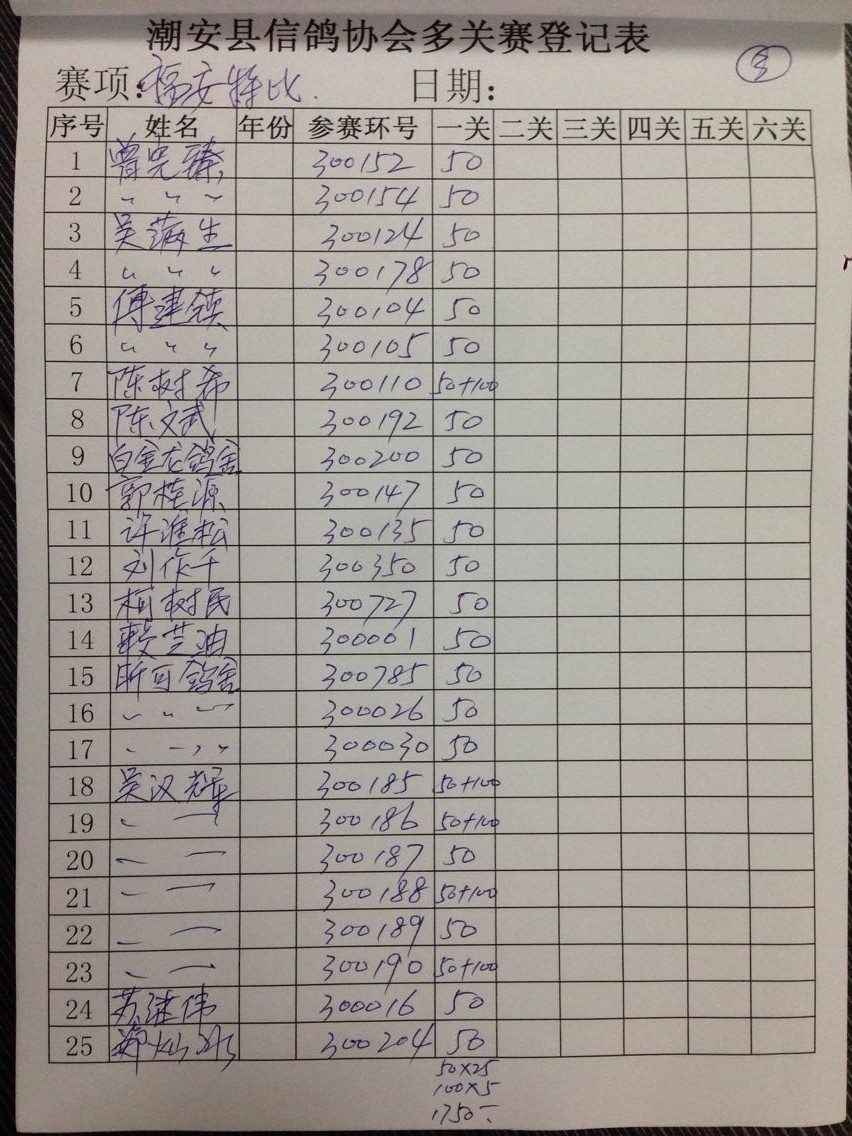 潮安县信鸽协会多关赛登记表
赛项:福安特比. 日期:
序号 姓名 年份 参赛环号 一关 二关 三关 四关 五关 六关
1 曾宪臻 300152 50
2 〃 〃 〃 300154 50
3 吴满生 300124 50
4 〃 〃 〃 300178 50
5 傅建镇 300104 50
6 〃 〃 〃 300105 50
7 陈树希 300110 50+100
8 陈文武 300192 50
9 白金龙鸽舍 300200 50
10 郭桂源 300147 50
11 许淮松 300135 50
12 刘作千 300350 50
13 柯树民 300727 50
14 赖芝油 300001 50
15 昕可鸽舍 300785 50
16 〃 〃 〃 300026 50
17 〃 〃 〃 300030 50
18 吴汉辉 300185 50+100
19 〃 〃 300186 50+100
20 〃 〃 300187 50
21 〃 〃 300188 50+100
22 〃 〃 300189 50
23 〃 〃 300190 50+100
24 苏继伟 300016 50
25 郑灿 300204 50
50×25
100×5
1750